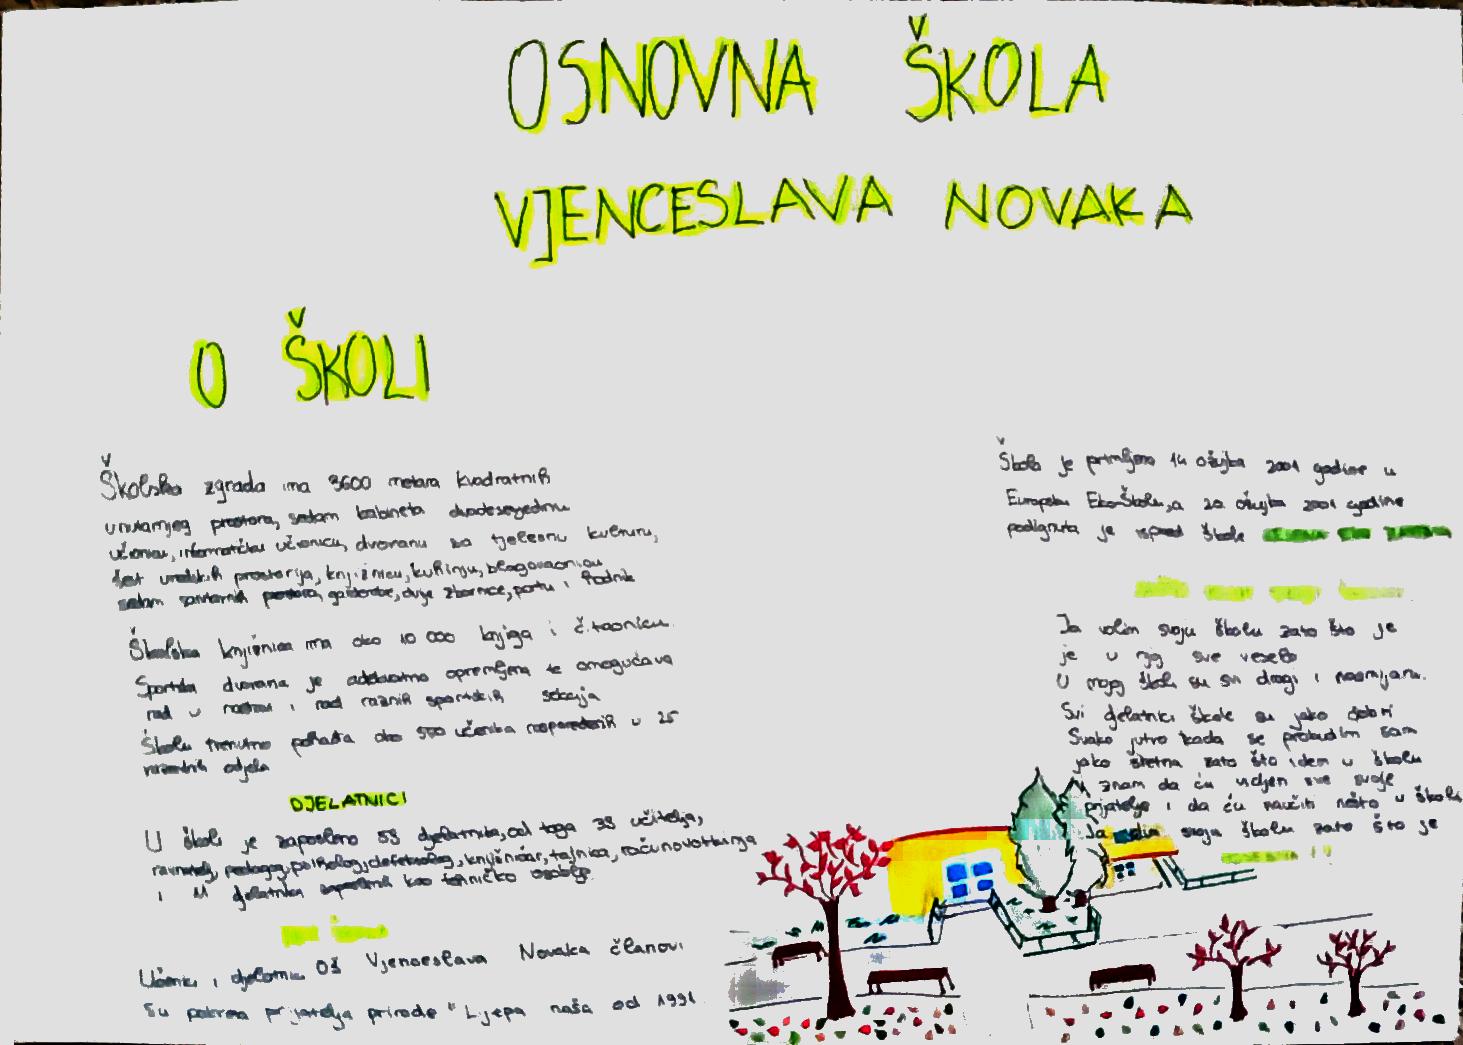 OSNOVNA ŠKOLA
VJENCESLAVA NOVAKA
O ŠKOLI
Školska zgrada ima 3600 metara kvadratnih
unutarnjeg prostora, sedam kabineta
učionicu, informatičku učionicu, dvoranu za tjelesnu kulturu,
šest uredskih prostorija, knjižnicu, kuhinju, blagovaonicu
sedam sanitarnih prostora, garderobe, dvije zbornice, portu i hodnik
Školska knjižnica ima oko 10 000 knjiga i čitaonicu.
Sportska dvorana je adekvatno opremljena te omogućava
rad u nastavi i rad raznih sportskih sekcija
Školu trenutno pohađa oko 500 učenika raspoređenih u 25
razrednih odjela
DJELATNICI
U školi je zaposleno 58 djelatnika, od toga 38 učitelja,
ravnatelj, pedagog, psiholog, defektolog, knjižničar, tajnica, računovotkinja
i 11 djelatnika zaposlenih kao tehničko osoblje.
Učenici i djelatnici OŠ Vjenceslava Novaka članovi
su pokreta prijatelja prirode "Lijepa naša od 1991.
Škola je primljena 14 ožujka 2001 godine u
Europsku EkoŠkolu, a 20. ožujka 2001 godine
podignuta je ispred škole
Ja volim svoju školu zato što je
je u njoj sve veselo
U mojoj školi su svi dragi i nasmijani.
Svi djelatnici škole su jako dobri
Svako jutro kada se probudim sam
jako sretna zato što idem u školu
i znam da ću vidjeti sve svoje
prijatelje i da ću naučiti nešto u školi
Ja volim svoju školu zato što je